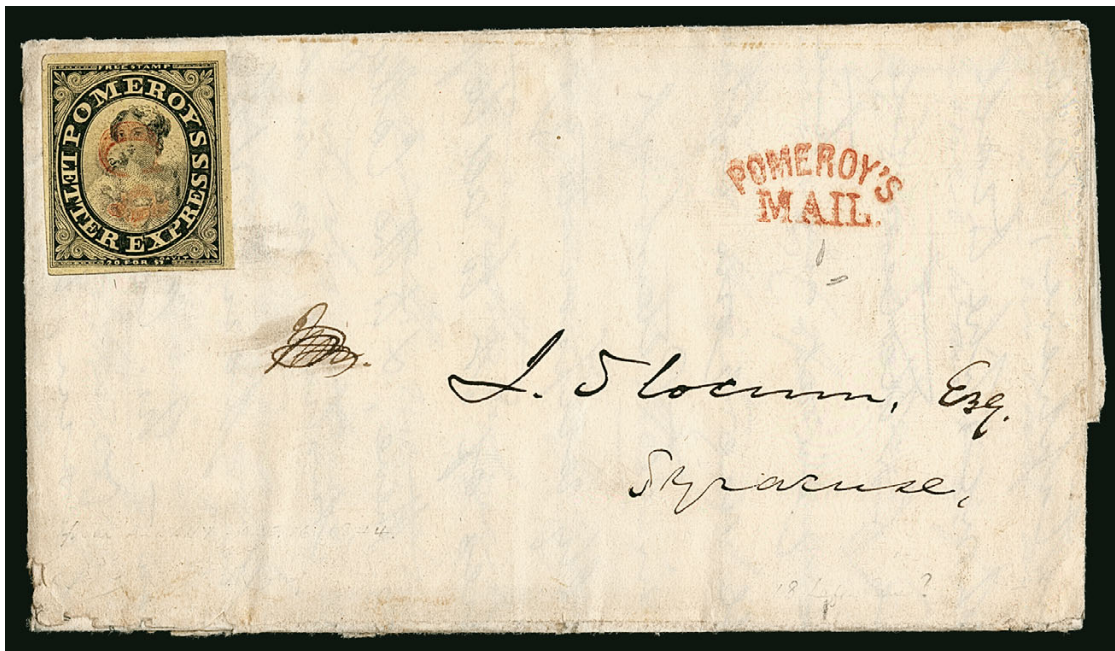 FREE STAMP
POMEROY'S
LETTER EXPRESS
20 FOR $1
POMEROY'S
MAIL.
J. Slocum, Esq.
Syracuse,